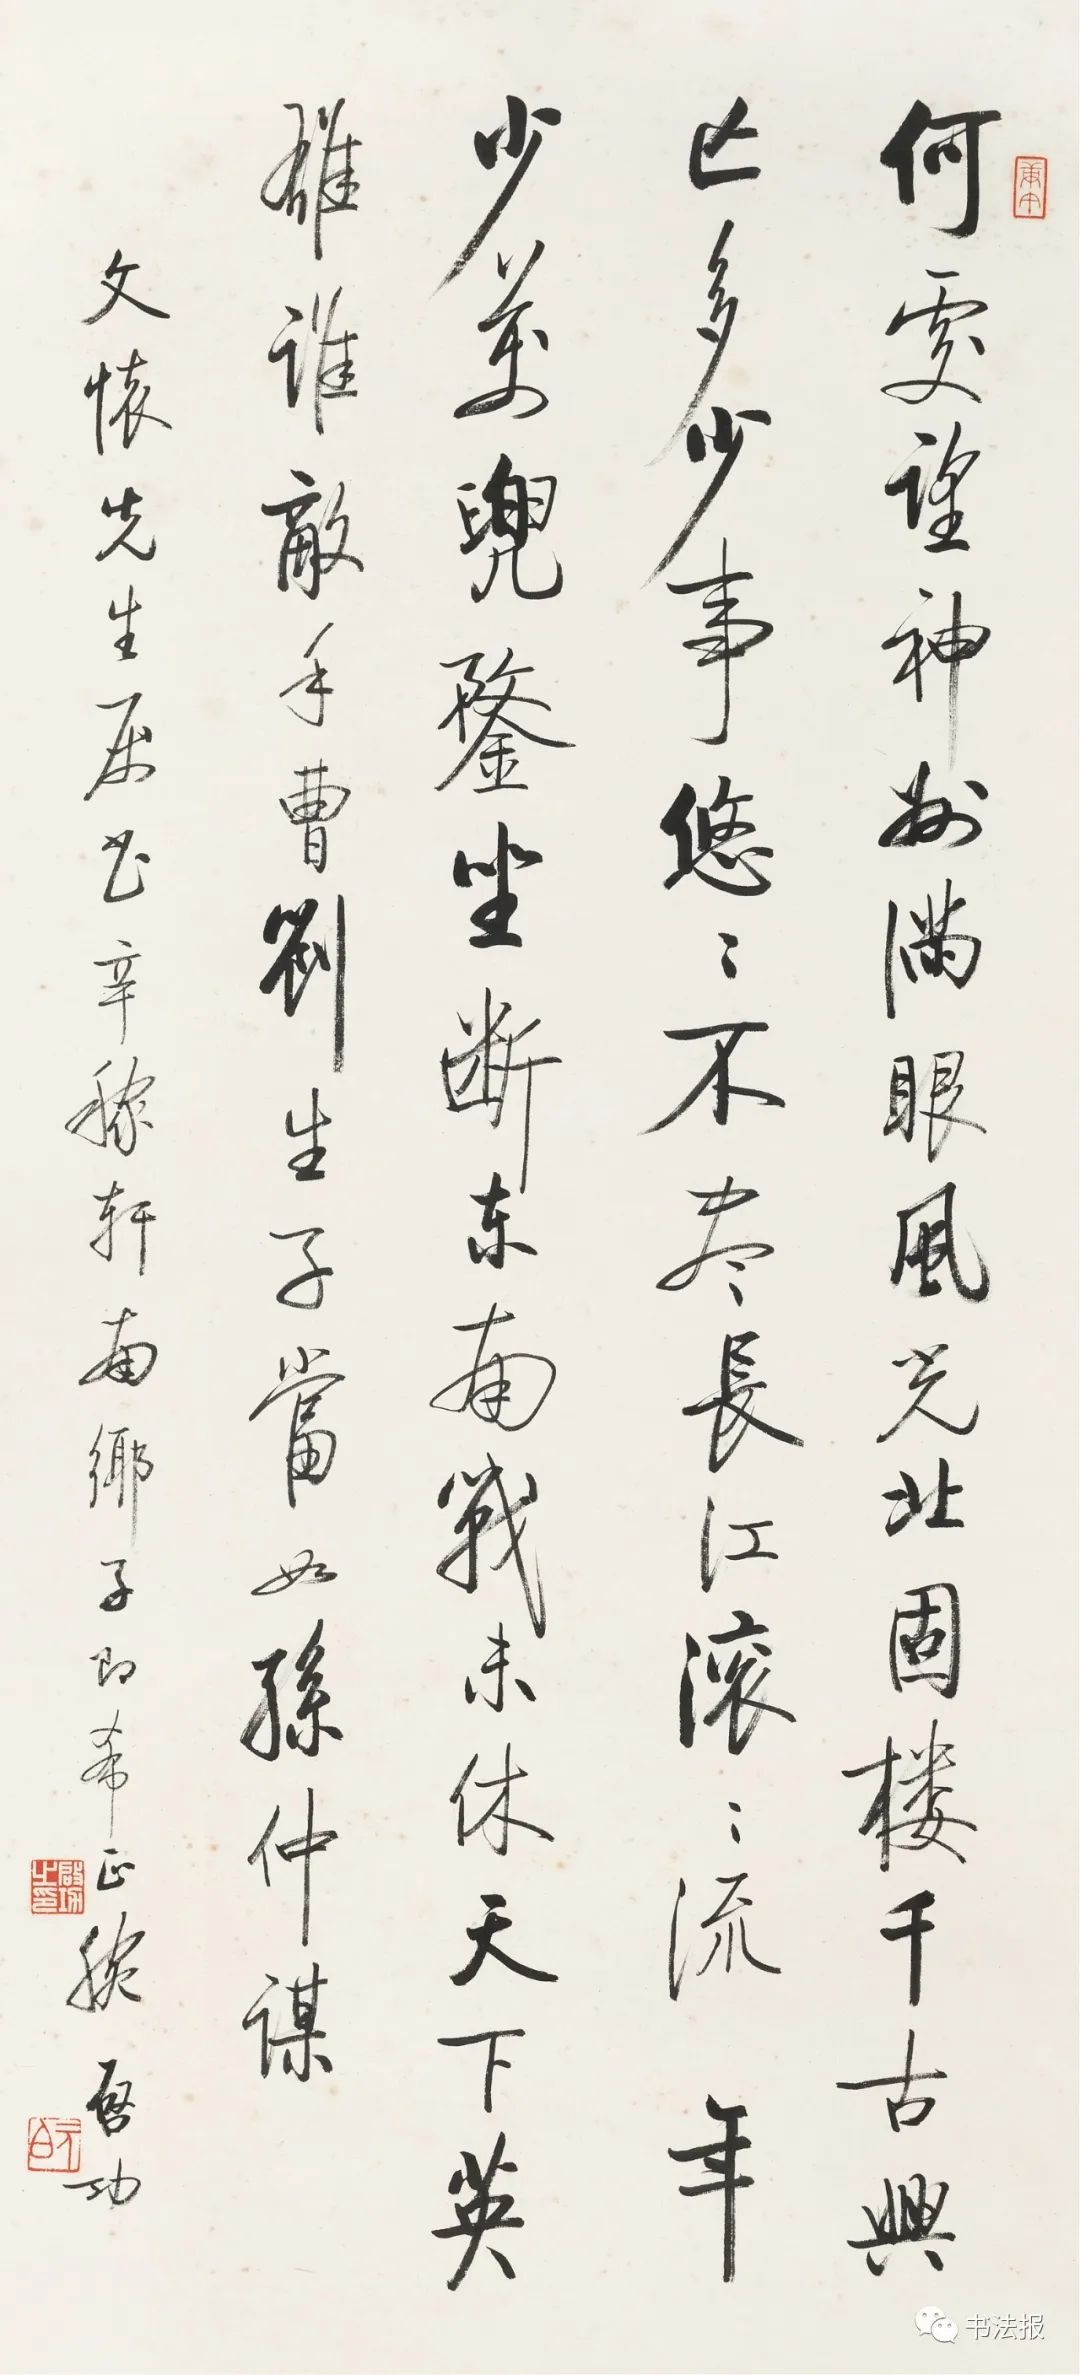 何處望神州滿眼風光北固楼千古興
亡多少事悠〻不尽長江滚〻流年
少萬兜鍪坐断东南戰未休天下英
雄誰敵手曹劉生子當如孫仲謀
文懷先生属书辛稼轩南鄉子即希正腕启功
啟功之印
书法报